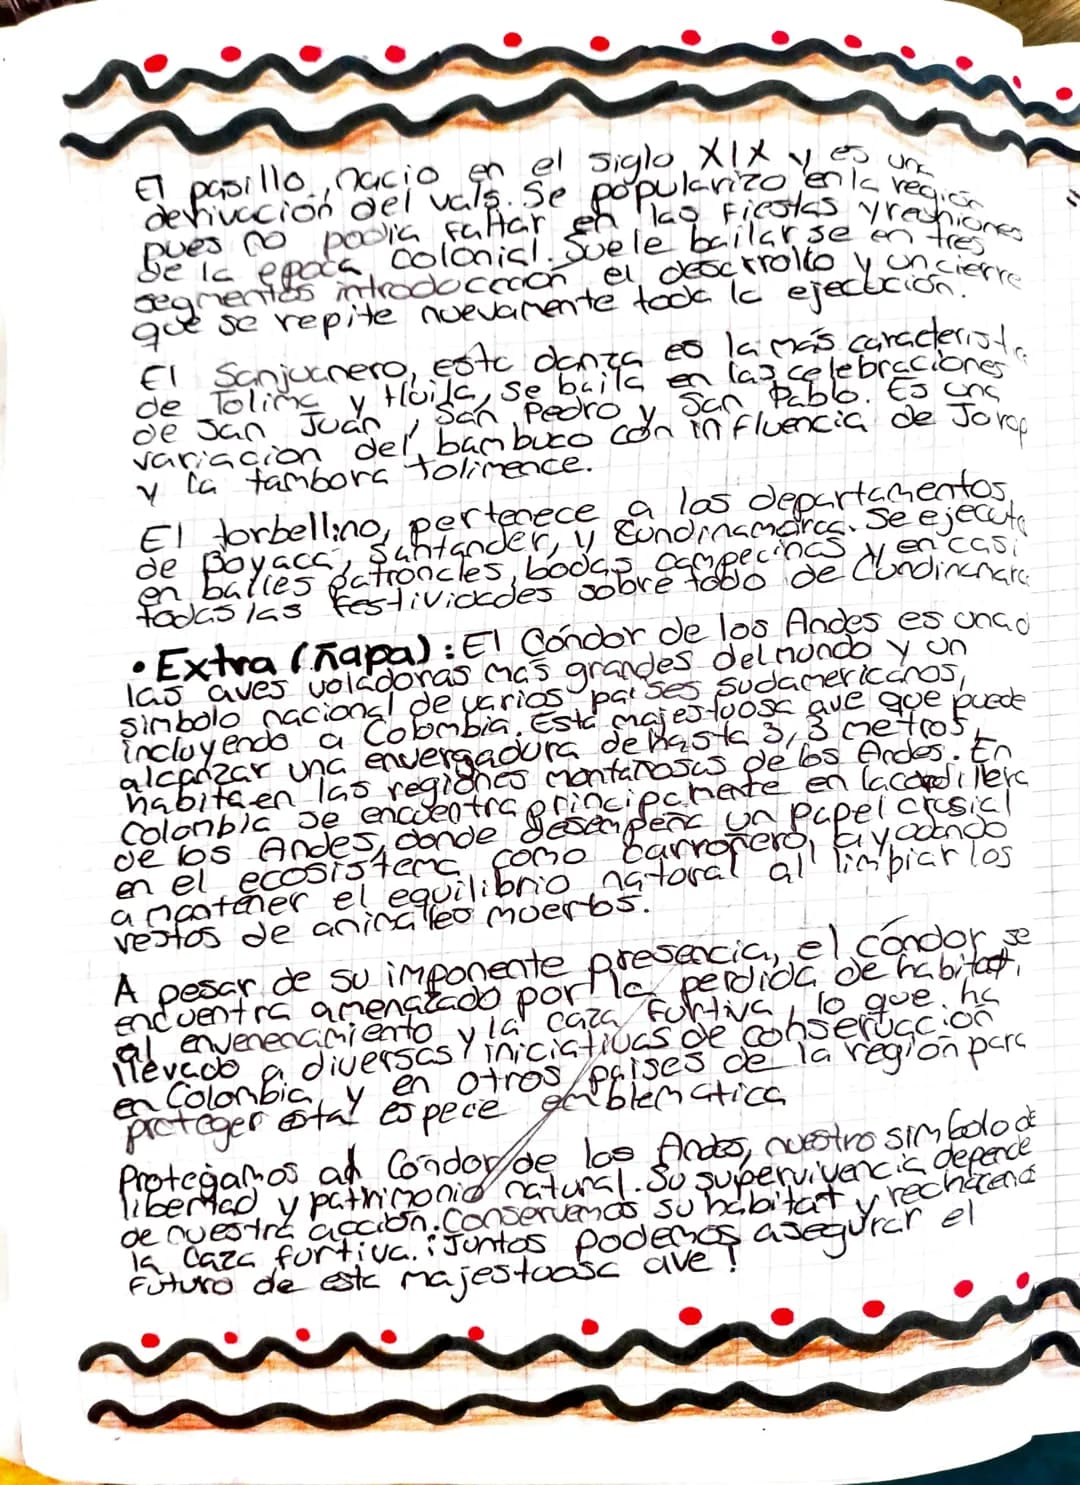 El pasillo, nacio en el siglo XIX y es una
derivación del vals. Se popularizo en la región
pues no podia faltar en las fiestas y reuniones
de la epoca colonial. Suele bailarse en tres
segmentos introduccion el desarrollo y un cierre
que se repite nuevamente toda la ejecución.
El Sanjuanero, esta danza es la más caracterist
de Tolima y Huila, se baila en las celebraciones
de San Juan, San Pedro y San Pablo. Es una
variacion del bambuco con influencia de Jorop
y la tambora tolimence.
El torbellino, pertenece a los departamentos
de Boyacá, Santander, y Cundinamarca. Se ejecuta
en bailes patronales, bodas campecinas y en casi
todas las festividades sobre todo de Cundinamarc
• Extra (Ñapa): El Cóndor de los Andes es una d
las aves voladoras más grandes del mundo y un
simbolo nacional de varios paises sudamericanos,
incluyendo a Colombia. Esta majestuosa ave que puede
alcanzar una envergadura de hasta 3,3 metros,
habita en las regiones montañosas de los Andes. En
Colombia se encuentra principamente en la cordillera
de los Andes, donde desempeña un papel crusial
en el ecosistema como carroñero, ayudando
a mantener el equilibrio natural al limpiar los
restos de animales muertos.
A pesar de su imponente presencia, el cóndor se
encuentra amenazado por la perdida de habitat,
al envenenamiento y la caza furtiva, lo que ha
llevado a diversas iniciativas de conservación
en Colombia y en otros paises de la región para
proteger esta especie emblematica
Protegamos al Cóndor de los Andes, nuestro simbolo de
libertad y patrimonio natural. Su supervivencia depende
de nuestra acción. Conservemos su habitat y rechacend
la caza furtiva. ¡Juntos podemos asegurar el
futuro de esta majestuosa ave!